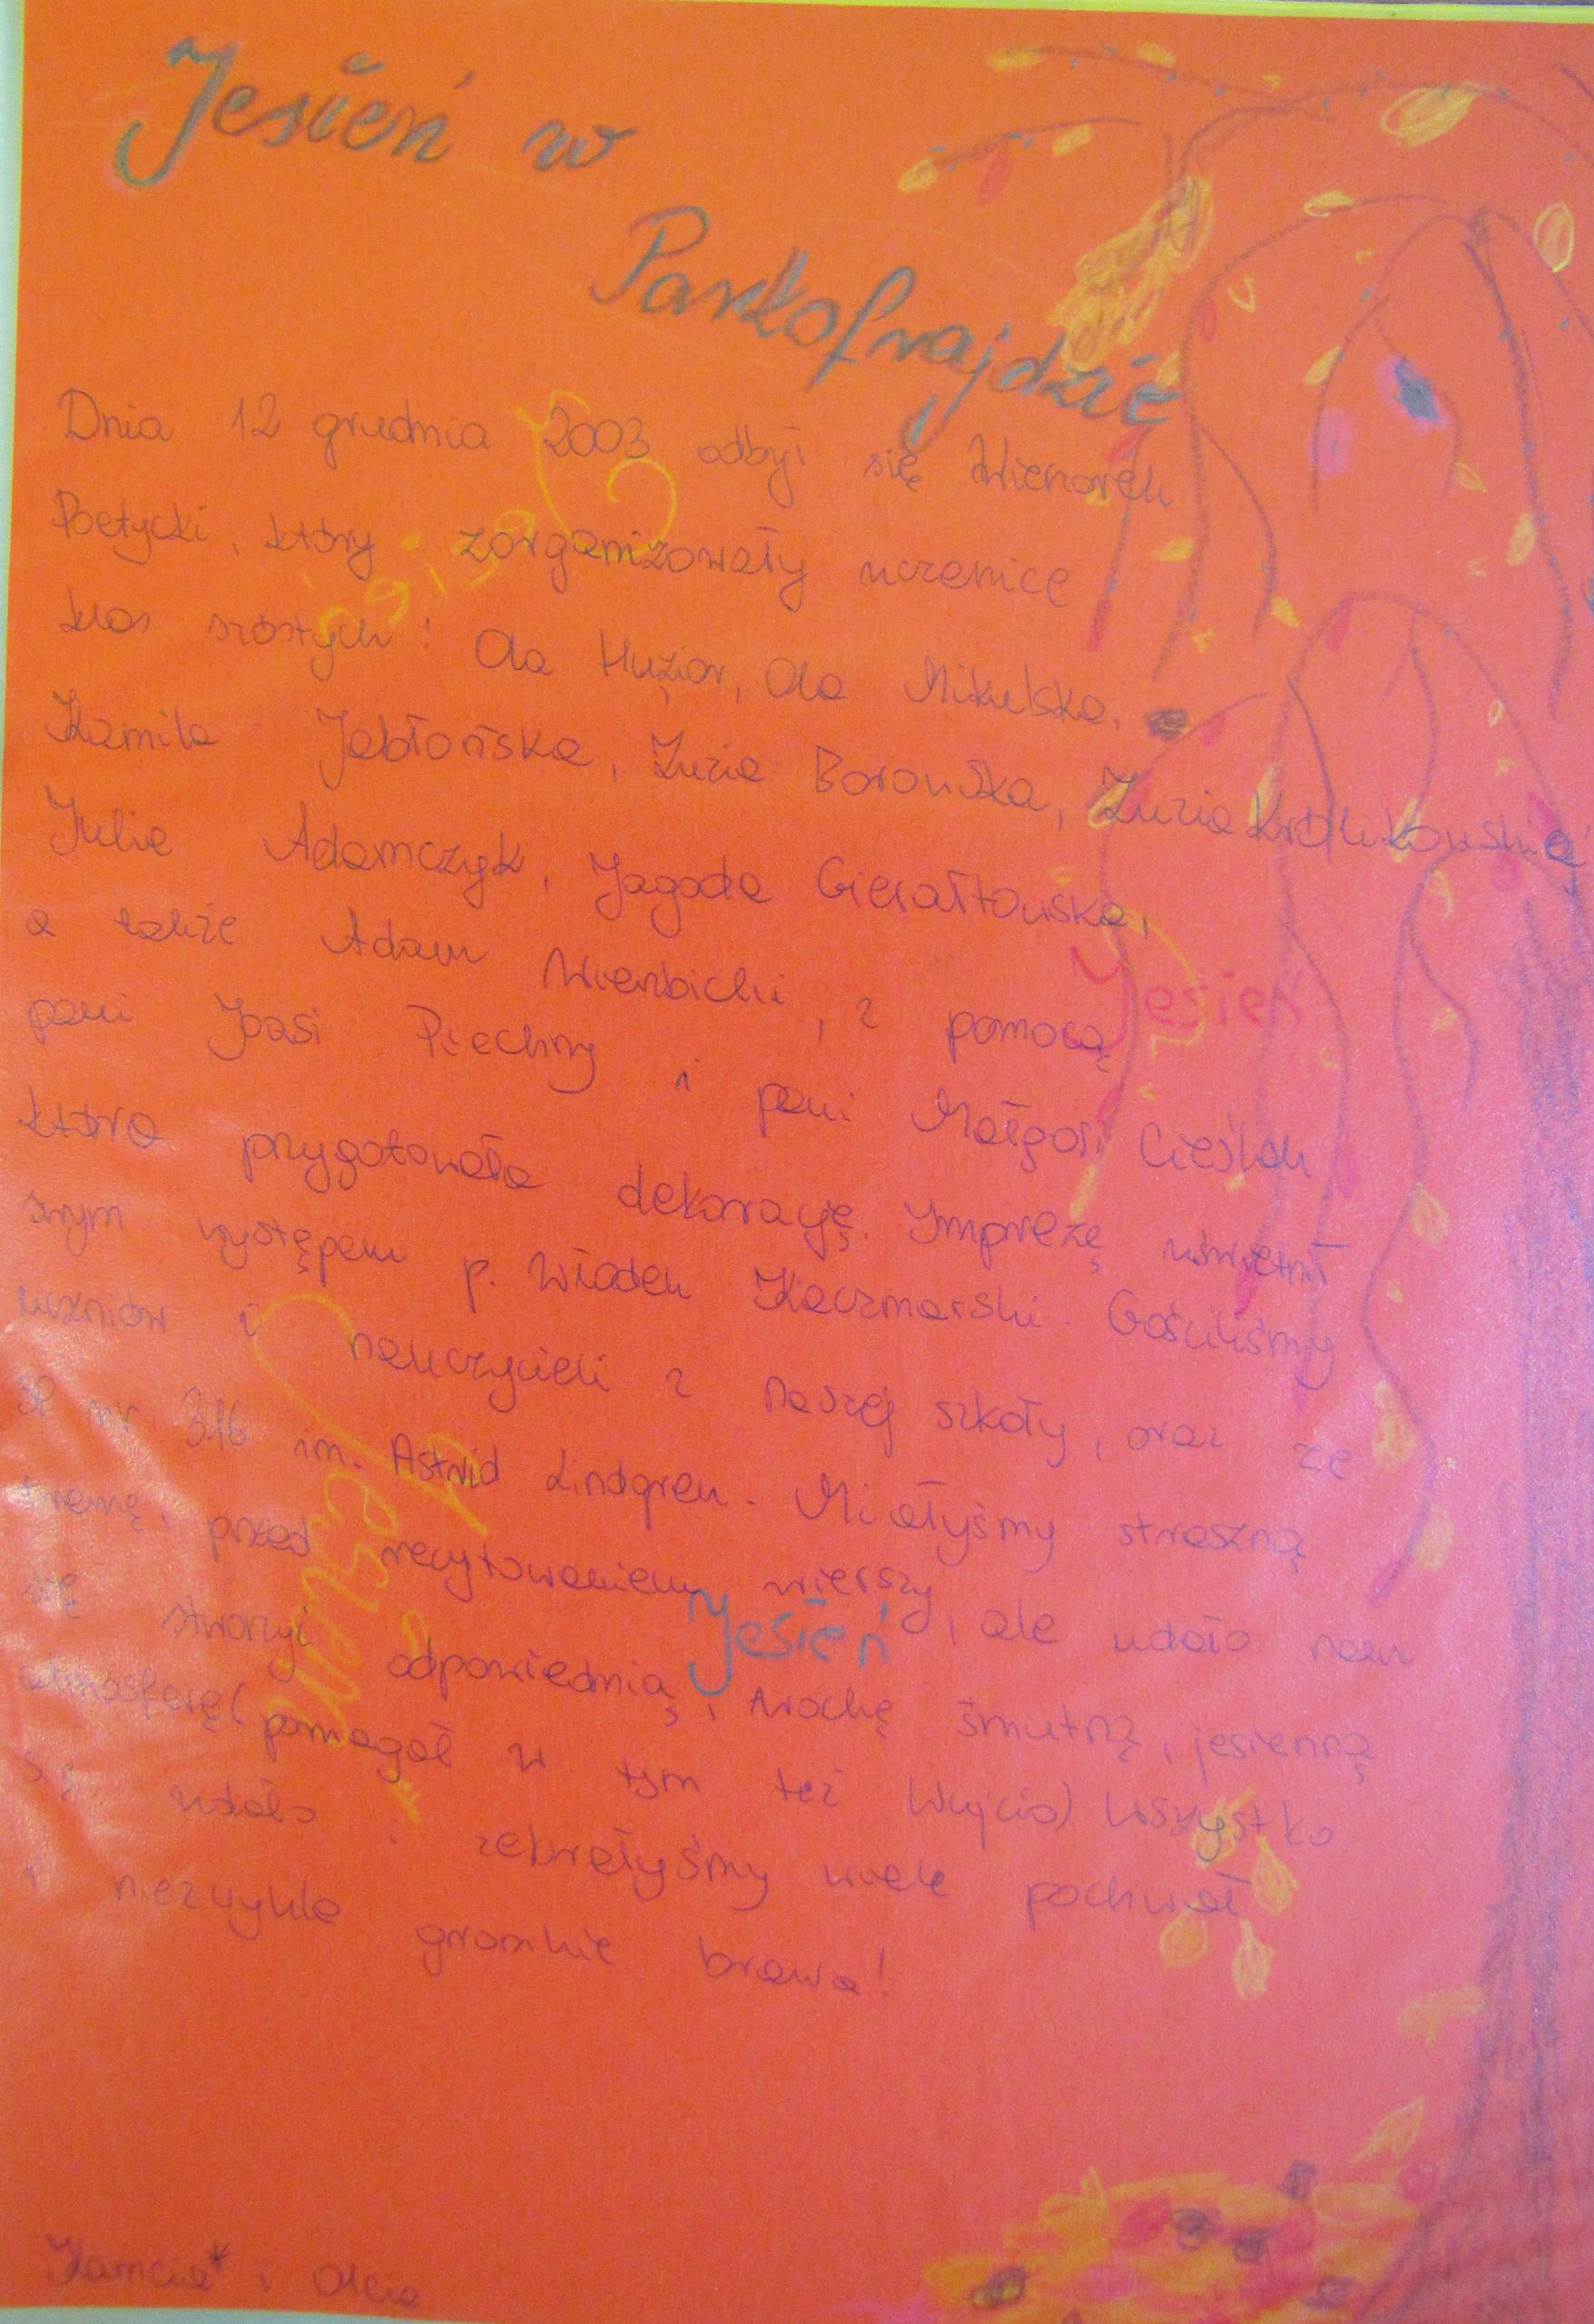 Jesień w
Parkofrajdzie
Dnia 12 grudnia 2003 odbył się Wieczorek
Poetycki, który zorganizowały uczenice
klas szóstych: Ola Huzior, Ola Mikulska,
Kamila Jabłońska, Zuzia Borowska, Zuzia Królikowska,
Julia Adamczyk, Jagoda Gierałtowska,
a także Adam Wierzbicki, z pomocą
pani Joasi Piechny i pani Małgosi Cieślak
która przygotowała dekorację. Imprezę uświetnił
swym występem p. Władek Kaczmarski. Gościliśmy
uczniów i nauczycieli z naszej szkoły, oraz ze
SP nr 316 im. Astrid Lindgren. Miałyśmy straszną
tremę, przed recytowaniem wierszy, ale udało nam
się stworzyć odpowiednią, trochę smutną, jesienną
atmosferę (pomagał w tym też Wujcio) Wszystko
się udało i zebrałyśmy wiele pochwał
i niezwykle gromkie brawa!
Jesień
Jesień
Jesień
Jesień
Kamcia* i Olcia